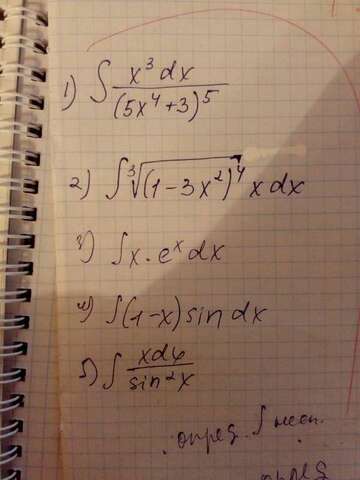 1) ∫ x³ dx / (5x⁴+3)⁵
2) ∫ ∛(1-3x²)⁴ x dx
3) ∫ x · eˣ dx
4) ∫ (1-x) sin dx
5) ∫ x dx / sin²x
опред. ∫ неоп.
опред